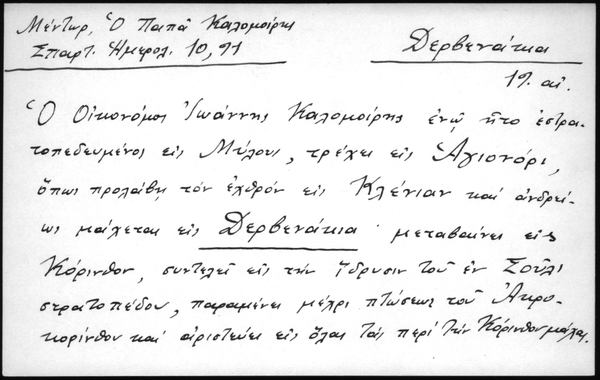 Μέντωρ, Ὁ Παπᾶ Καλομοίρης
Σπαρτ. Ἡμερολ. 10, 91
Δερβενάκια
19. αἰ.
Ὁ Οἰκονόμος Ἰωάννης Καλομοίρης ἐνῶ ἦτο ἐστρα-
τοπεδευμένος εἰς Μύλους, τρέχει εἰς Ἁγιονόρι,
ὅπως προλάβῃ τὸν ἐχθρὸν εἰς Κλένιαν καὶ ἀνδρεί-
ως μάχεται εἰς Δερβενάκια· μεταβαίνει εἰς
Κόρινθον, συντελεῖ εἰς τὴν ἵδρυσιν τοῦ ἐν Σούλι
στρατοπέδου, παραμένει μέχρι πτώσεως τοῦ Ἀκρο-
κορίνθου καὶ ἀριστεύει εἰς ὅλας τὰς περὶ τὴν Κόρινθον μάχας.